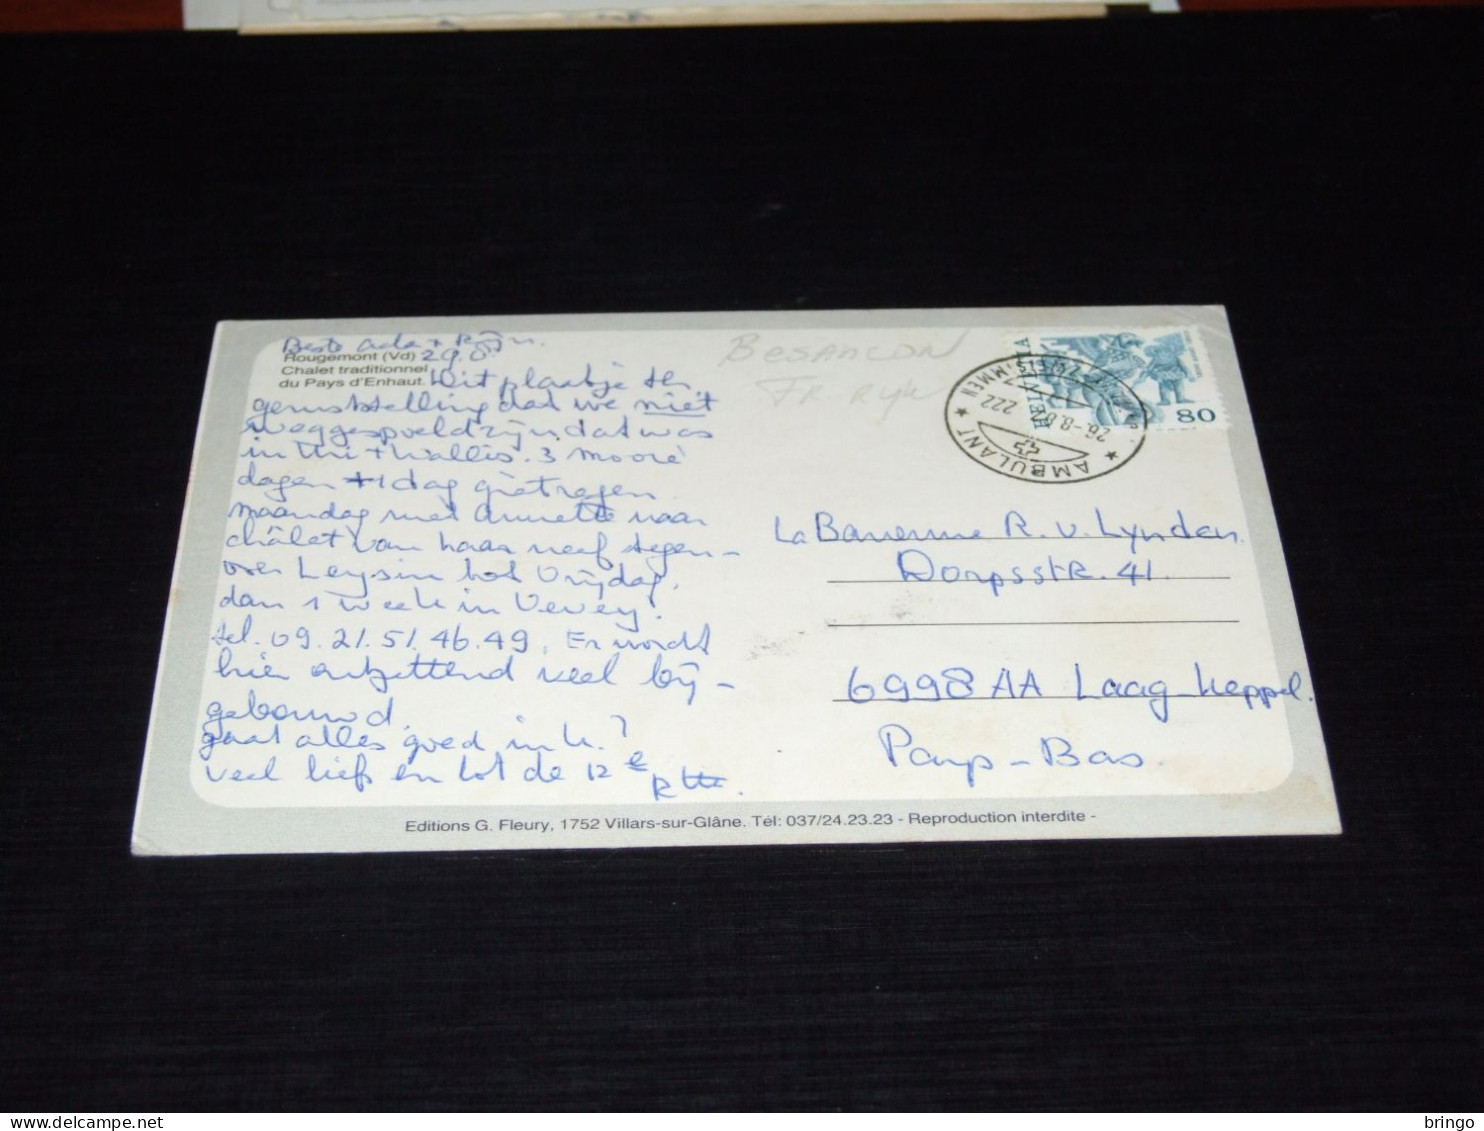 Beste Ada + Rijn.
Rougemont (Vd) 29.8
Chalet traditionnel
du Pays d'Enhaut. Dit plaatje ter
geruststelling dat we niet
weggespoeld zijn, dat was
in Uri + Wallis. 3 mooie
dagen + 1 dag gietregen
maandag met Annette naar
châlet van haar neef tegen-
over Leysin tot Vrijdag.
dan 1 week in Vevey.
tel. 09.21.51.46.49. Er wordt
hier ontzettend veel bij-
gebouwd.
gaat alles goed in h.?
veel liefs en tot de 12e
BESANCON
FR. RYK
HELVETIA
80
AMBULANT
ZWEISIMMEN
26.-8.8
222
La Baronne R. v. Lynden.
Dorpsstr. 41.
6998 AA Laag-Keppel.
Pays-Bas.
Editions G. Fleury, 1752 Villars-sur-Glâne. Tél: 037/24.23.23 - Reproduction interdite -
bringo